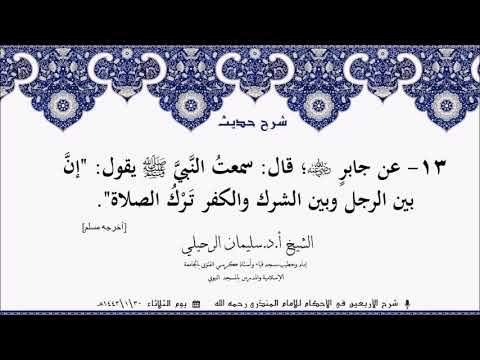 شرح حديث
١٣- عن جابرٍ ﵁؛ قال: سمعتُ النَّبيَّ ﷺ يقول: "إنَّ
بين الرجل وبين الشرك والكفر تَرْكُ الصلاة".
[أخرجه مسلم]
الشيخ أ.د.سليمان الرحيلي
إمام وخطيب مسجد قباء وأستاذ كرسي الفتوى بالجامعة
الإسلامية والمدرس بالمسجد النبوي
شرح الأربعين في الأحكام للإمام المنذري رحمه الله
يوم الثلاثاء ١٤٤٣/١/٣٠هـ